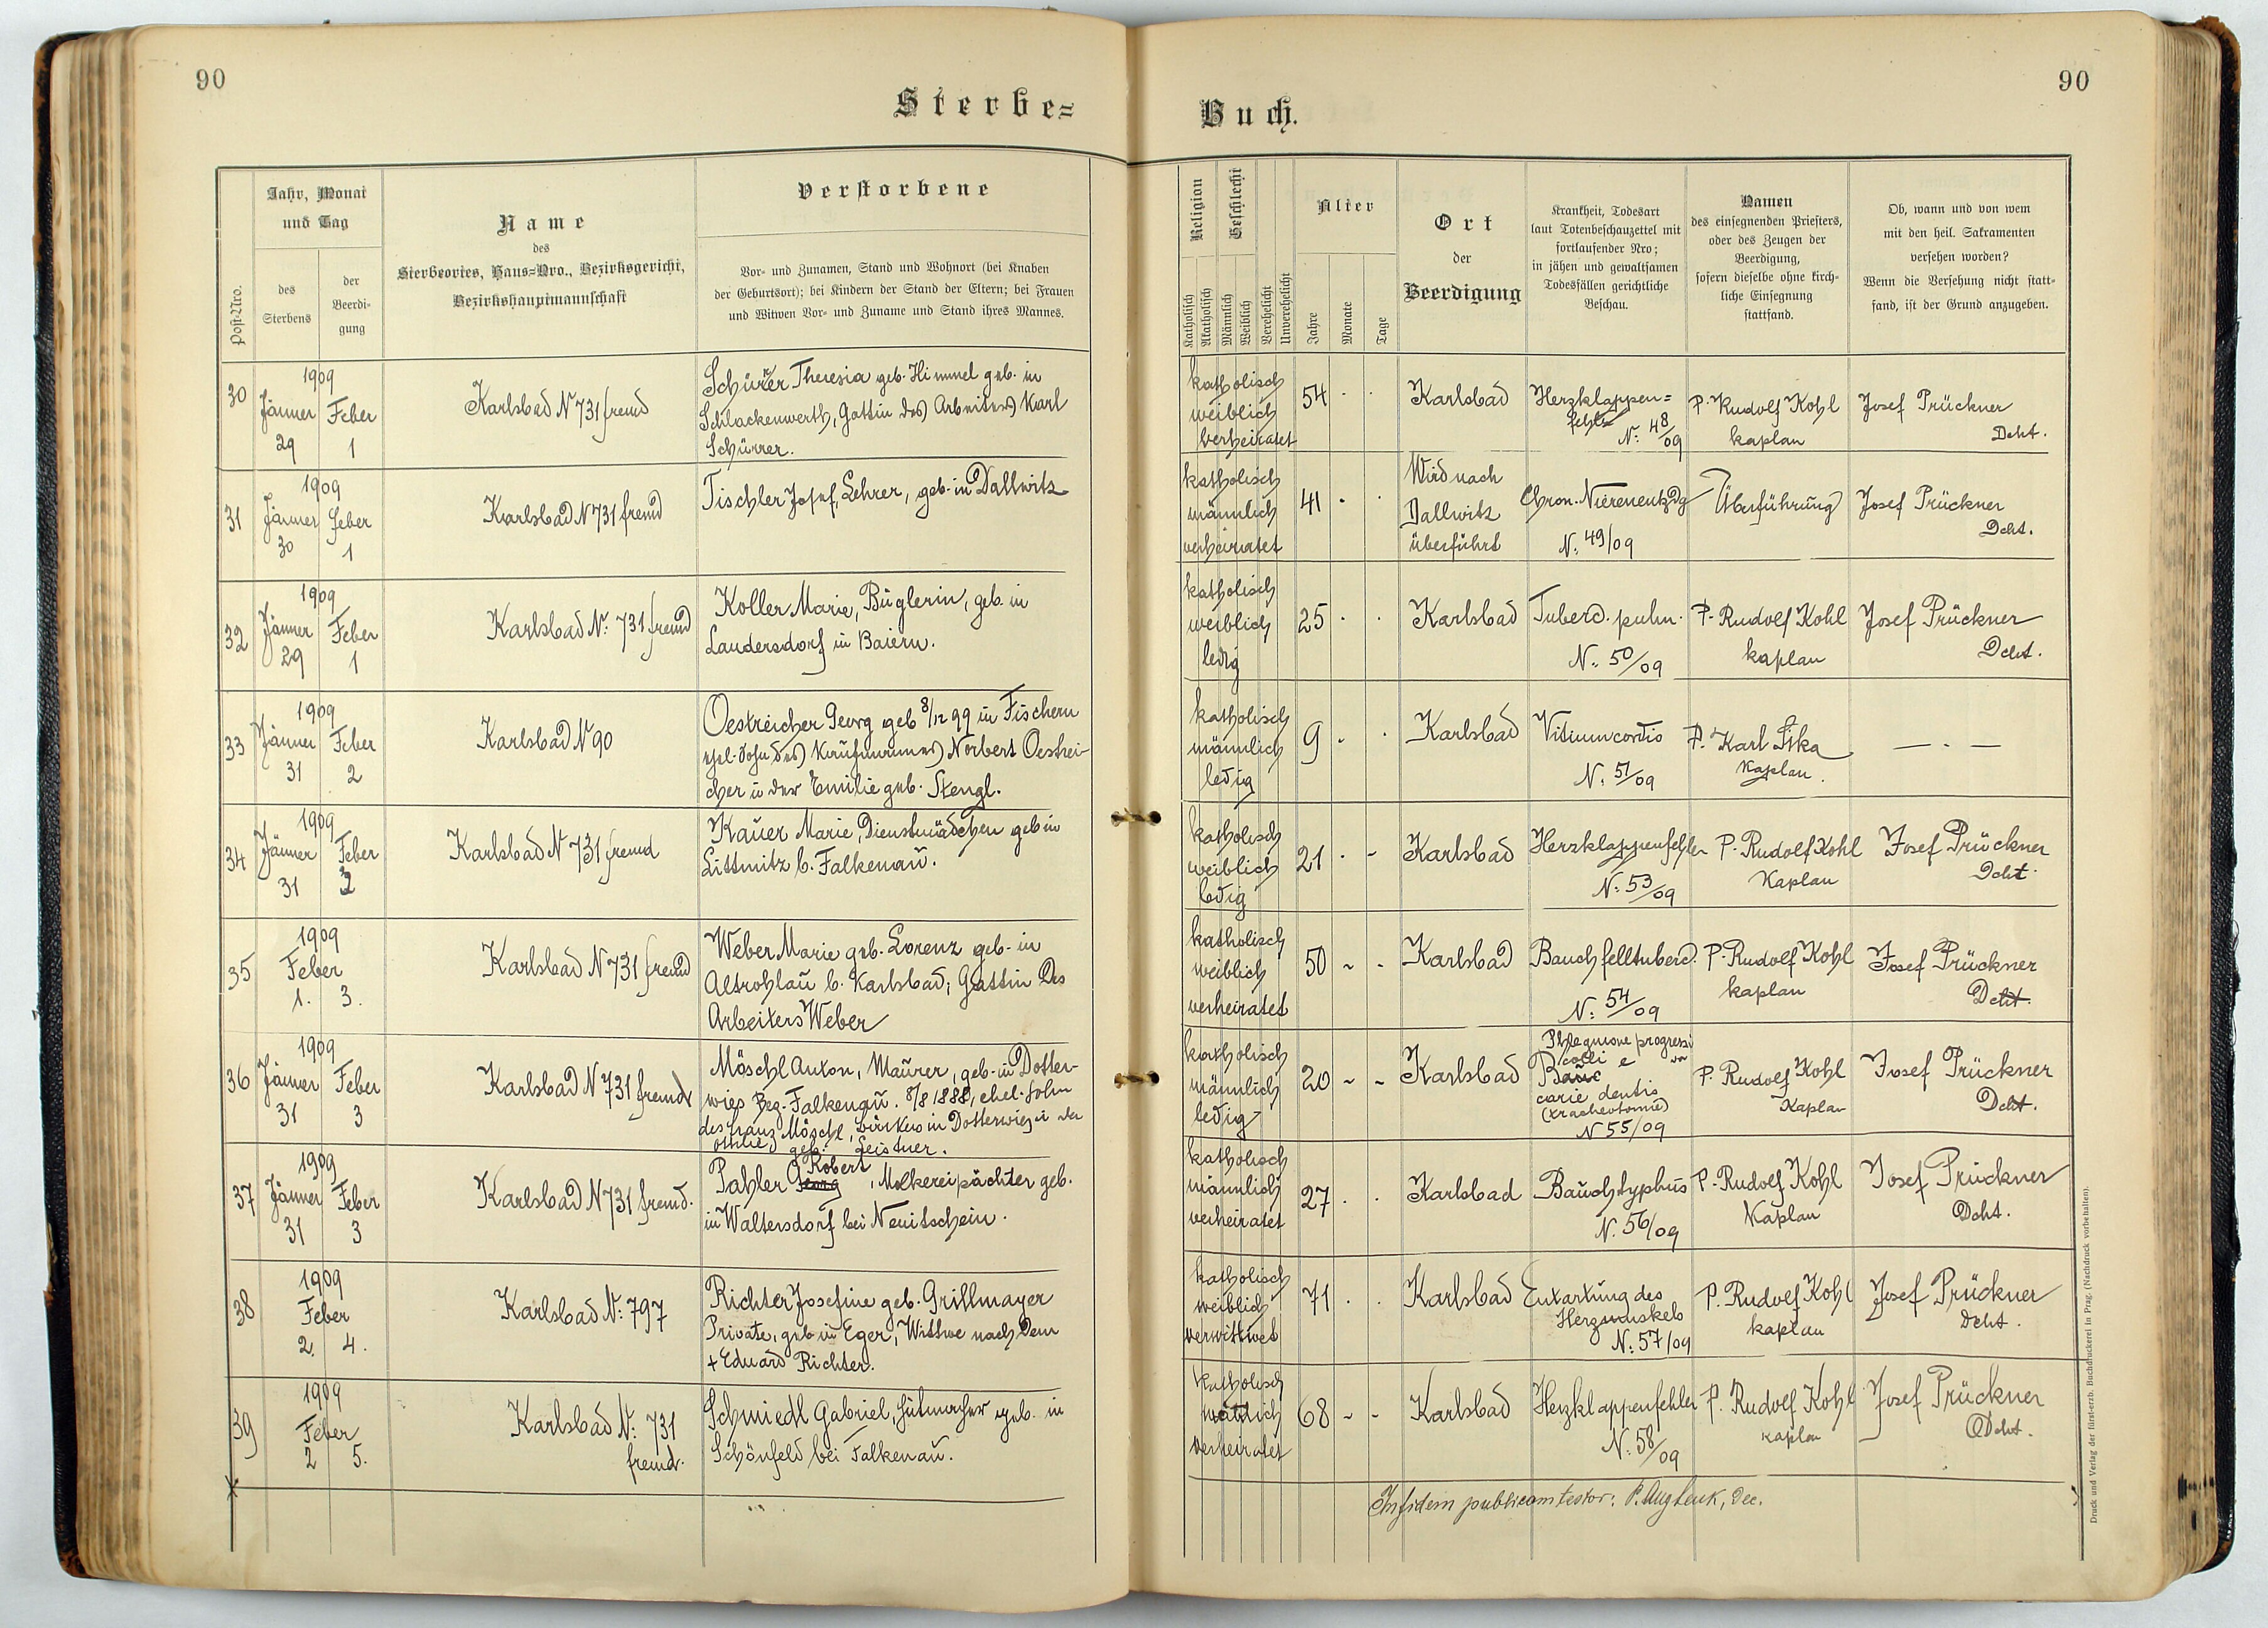 90
Sterbe=
Post-Nro.
Jahr, Monat
und Tag
des
Sterbens
der
Beerdi-
gung
Name
des
Sterbeortes, Haus=Nro., Bezirksgericht,
Bezirkshauptmannschaft
Verstorbene
Vor- und Zunamen, Stand und Wohnort (bei Knaben
der Geburtsort); bei Kindern der Stand der Eltern; bei Frauen
und Witwen Vor- und Zuname und Stand ihres Mannes.
30
1909
Jänner Feber
29 1
Karlsbad N 731 fremd
Schürrer Theresia geb. Himmel geb. in
Schlackenwerth, Gattin des Arbeiters Karl
Schürrer.
31
1909
Jänner Feber
30 1
Karlsbad N 731 fremd
Tischler Josef, Lehrer, geb. in Dallwitz
32
1909
Jänner Feber
29 1
Karlsbad N: 731 fremd
Koller Marie, Büglerin, geb. in
Laudersdorf in Baiern.
33
1909
Jänner Feber
31 2
Karlsbad N 90
Oestreicher Georg geb 8/12 99 in Fischern
ehel. Sohn des Kaufmannes Norbert Oestrei-
cher u der Emilie geb. Stengl.
34
1909
Jänner Feber
31 3
Karlsbad N 731 fremd
Kauer Marie, Dienstmädchen geb in
Littmitz b. Falkenau.
35
1909
Feber
1. 3.
Karlsbad N 731 fremd
Weber Marie geb. Lorenz geb. in
Altrohlau b. Karlsbad; Gattin des
Arbeiters Weber
36
1909
Jänner Feber
31 3
Karlsbad N 731 fremd
Möschl Anton, Maurer, geb. in Dotter-
wies Bez. Falkenau. 8/8 1888, ehel. Sohn
des Franz Möschl, in Dotterwies u der
Ottilie geb. Leistner.
37
1909
Jänner Feber
31 3
Karlsbad N 731 fremd.
Robert
Pahler Georg, Molkereipächter geb.
in Waltersdorf bei Neutitschein.
38
1909
Feber
2. 4.
Karlsbad N: 797
Richter Josefine geb. Grillmayer
Private, geb in Eger, Wittwe nach dem
+ Eduard Richter.
39
1909
Feber
2 5.
Karlsbad N: 731
fremd.
Schmiedl Gabriel, Hutmacher geb. in
Schönfeld bei Falkenau.
90
Buch.
Religion
Katholisch
Akatholisch
Geschlecht
Männlich
Weiblich
Verehelicht
Unverehelicht
Alter
Jahre
Monate
Tage
Ort
der
Beerdigung
Krankheit, Todesart
laut Totenbeschauzettel mit
fortlaufender Nro;
in jähen und gewaltsamen
Todesfällen gerichtliche
Beschau.
Namen
des einsegnenden Priesters,
oder des Zeugen der
Beerdigung,
sofern dieselbe ohne kirch-
liche Einsegnung
stattfand.
Ob, wann und von wem
mit den heil. Sakramenten
versehen worden?
Wenn die Versehung nicht statt-
fand, ist der Grund anzugeben.
katholisch
weiblich
verheiratet
54
Karlsbad
Herzklappen=
fehler
N: 48/09
P. Rudolf Kohl
kaplan
Josef Prückner
Dcht.
katholisch
männlich
verheiratet
41
Wird nach
Dallwitz
überführt
Chron. Nierenentzdg
N: 49/09
Überführung
Josef Prückner
Dcht.
katholisch
weiblich
ledig
25
Karlsbad
Tuberc. pulm.
N: 50/09
P. Rudolf Kohl
kaplan
Josef Prückner
Dcht.
katholisch
männlich
ledig
9
Karlsbad
Vitium cordis
N: 51/09
P. Karl Sika
Kaplan.
— . —
katholisch
weiblich
ledig
21
Karlsbad
Herzklappenfehler
N: 53/09
P. Rudolf Kohl
Kaplan
Josef Prückner
Dcht.
katholisch
weiblich
verheiratet
50
Karlsbad
Bauchfelltuberc.
N: 54/09
P. Rudolf Kohl
kaplan
Josef Prückner
Dcht.
katholisch
männlich
ledig
20
Karlsbad
Phlegmone progressi
va
colli e
carie dentis
(Tracheotomie)
N 55/09
P. Rudolf Kohl
Kaplan
Josef Prückner
Dcht.
katholisch
männlich
verheiratet
27
Karlsbad
Bauchtyphus
N. 56/09
P. Rudolf Kohl
Kaplan
Josef Prückner
Dcht.
katholisch
weiblich
verwittwet
71
Karlsbad
Entartung des
Herzmuskels
N: 57/09
P. Rudolf Kohl
kaplan
Josef Prückner
Dcht.
katholisch
männlich
verheiratet
68
Karlsbad
Herzklappenfehler
N: 58/09
P. Rudolf Kohl
kaplan
Josef Prückner
Dcht.
In fidem publicam testor: P. Aug Lenk, Dec.
Druck und Verlag der fürst-erzb. Buchdruckerei in Prag. (Nachdruck vorbehalten).